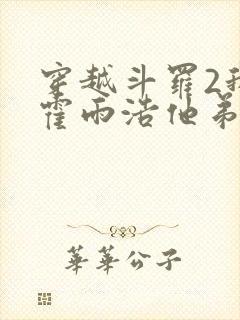 穿越斗羅2我
霍雨浩他弟
華華公子